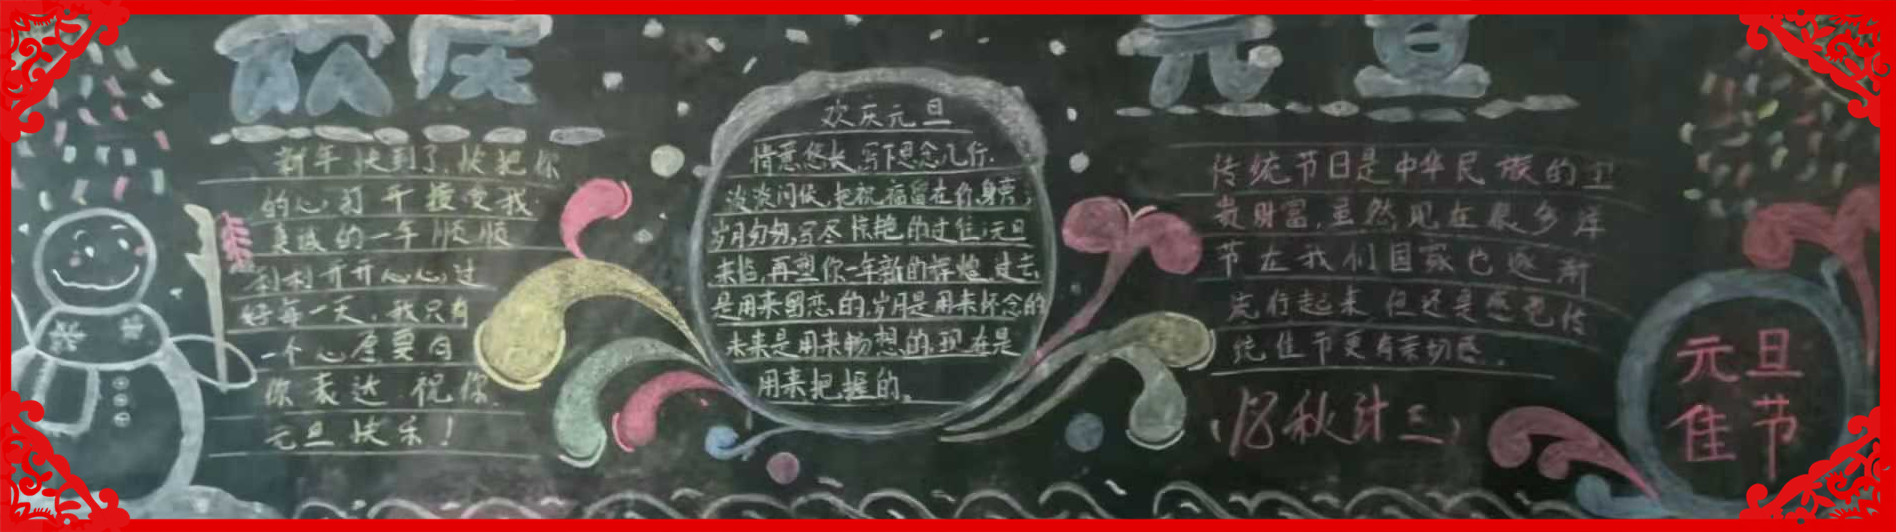 欢庆
元旦
新年快到了,快把你
的心打开接受我
真诚的一年顺顺
利利开开心心,过
好每一天,我只有
一个心愿要向
你表达 祝你
元旦快乐!
欢庆元旦
情意悠长,写下思念几行.
淡淡问候,把祝福留在你身旁;
岁月匆匆,写尽惊艳的过往;元旦
来临,再塑你一年新的辉煌 过去
是用来留恋的,岁月是用来怀念的
未来是用来畅想的,现在是
用来把握的。
传统节日是中华民族的
贵财富,虽然现在很多洋
节在我们国家也逐渐
流行起来 但还是感觉传
统佳节更有亲切感.
秋计三)
元旦
佳节